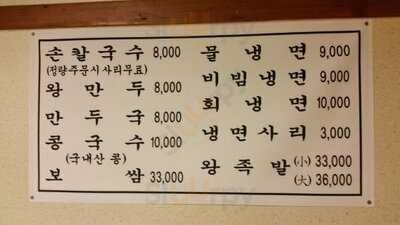 손 칼 국 수 8,000
(정량주문시 사리무료)
왕 만 두 8,000
만 두 국 8,000
콩 국 수 10,000
(국내산 콩)
보 쌈 33,000
물 냉 면 9,000
비 빔 냉 면 9,000
회 냉 면 10,000
냉 면 사 리 3,000
왕 족 발 (小) 33,000
(大) 36,000